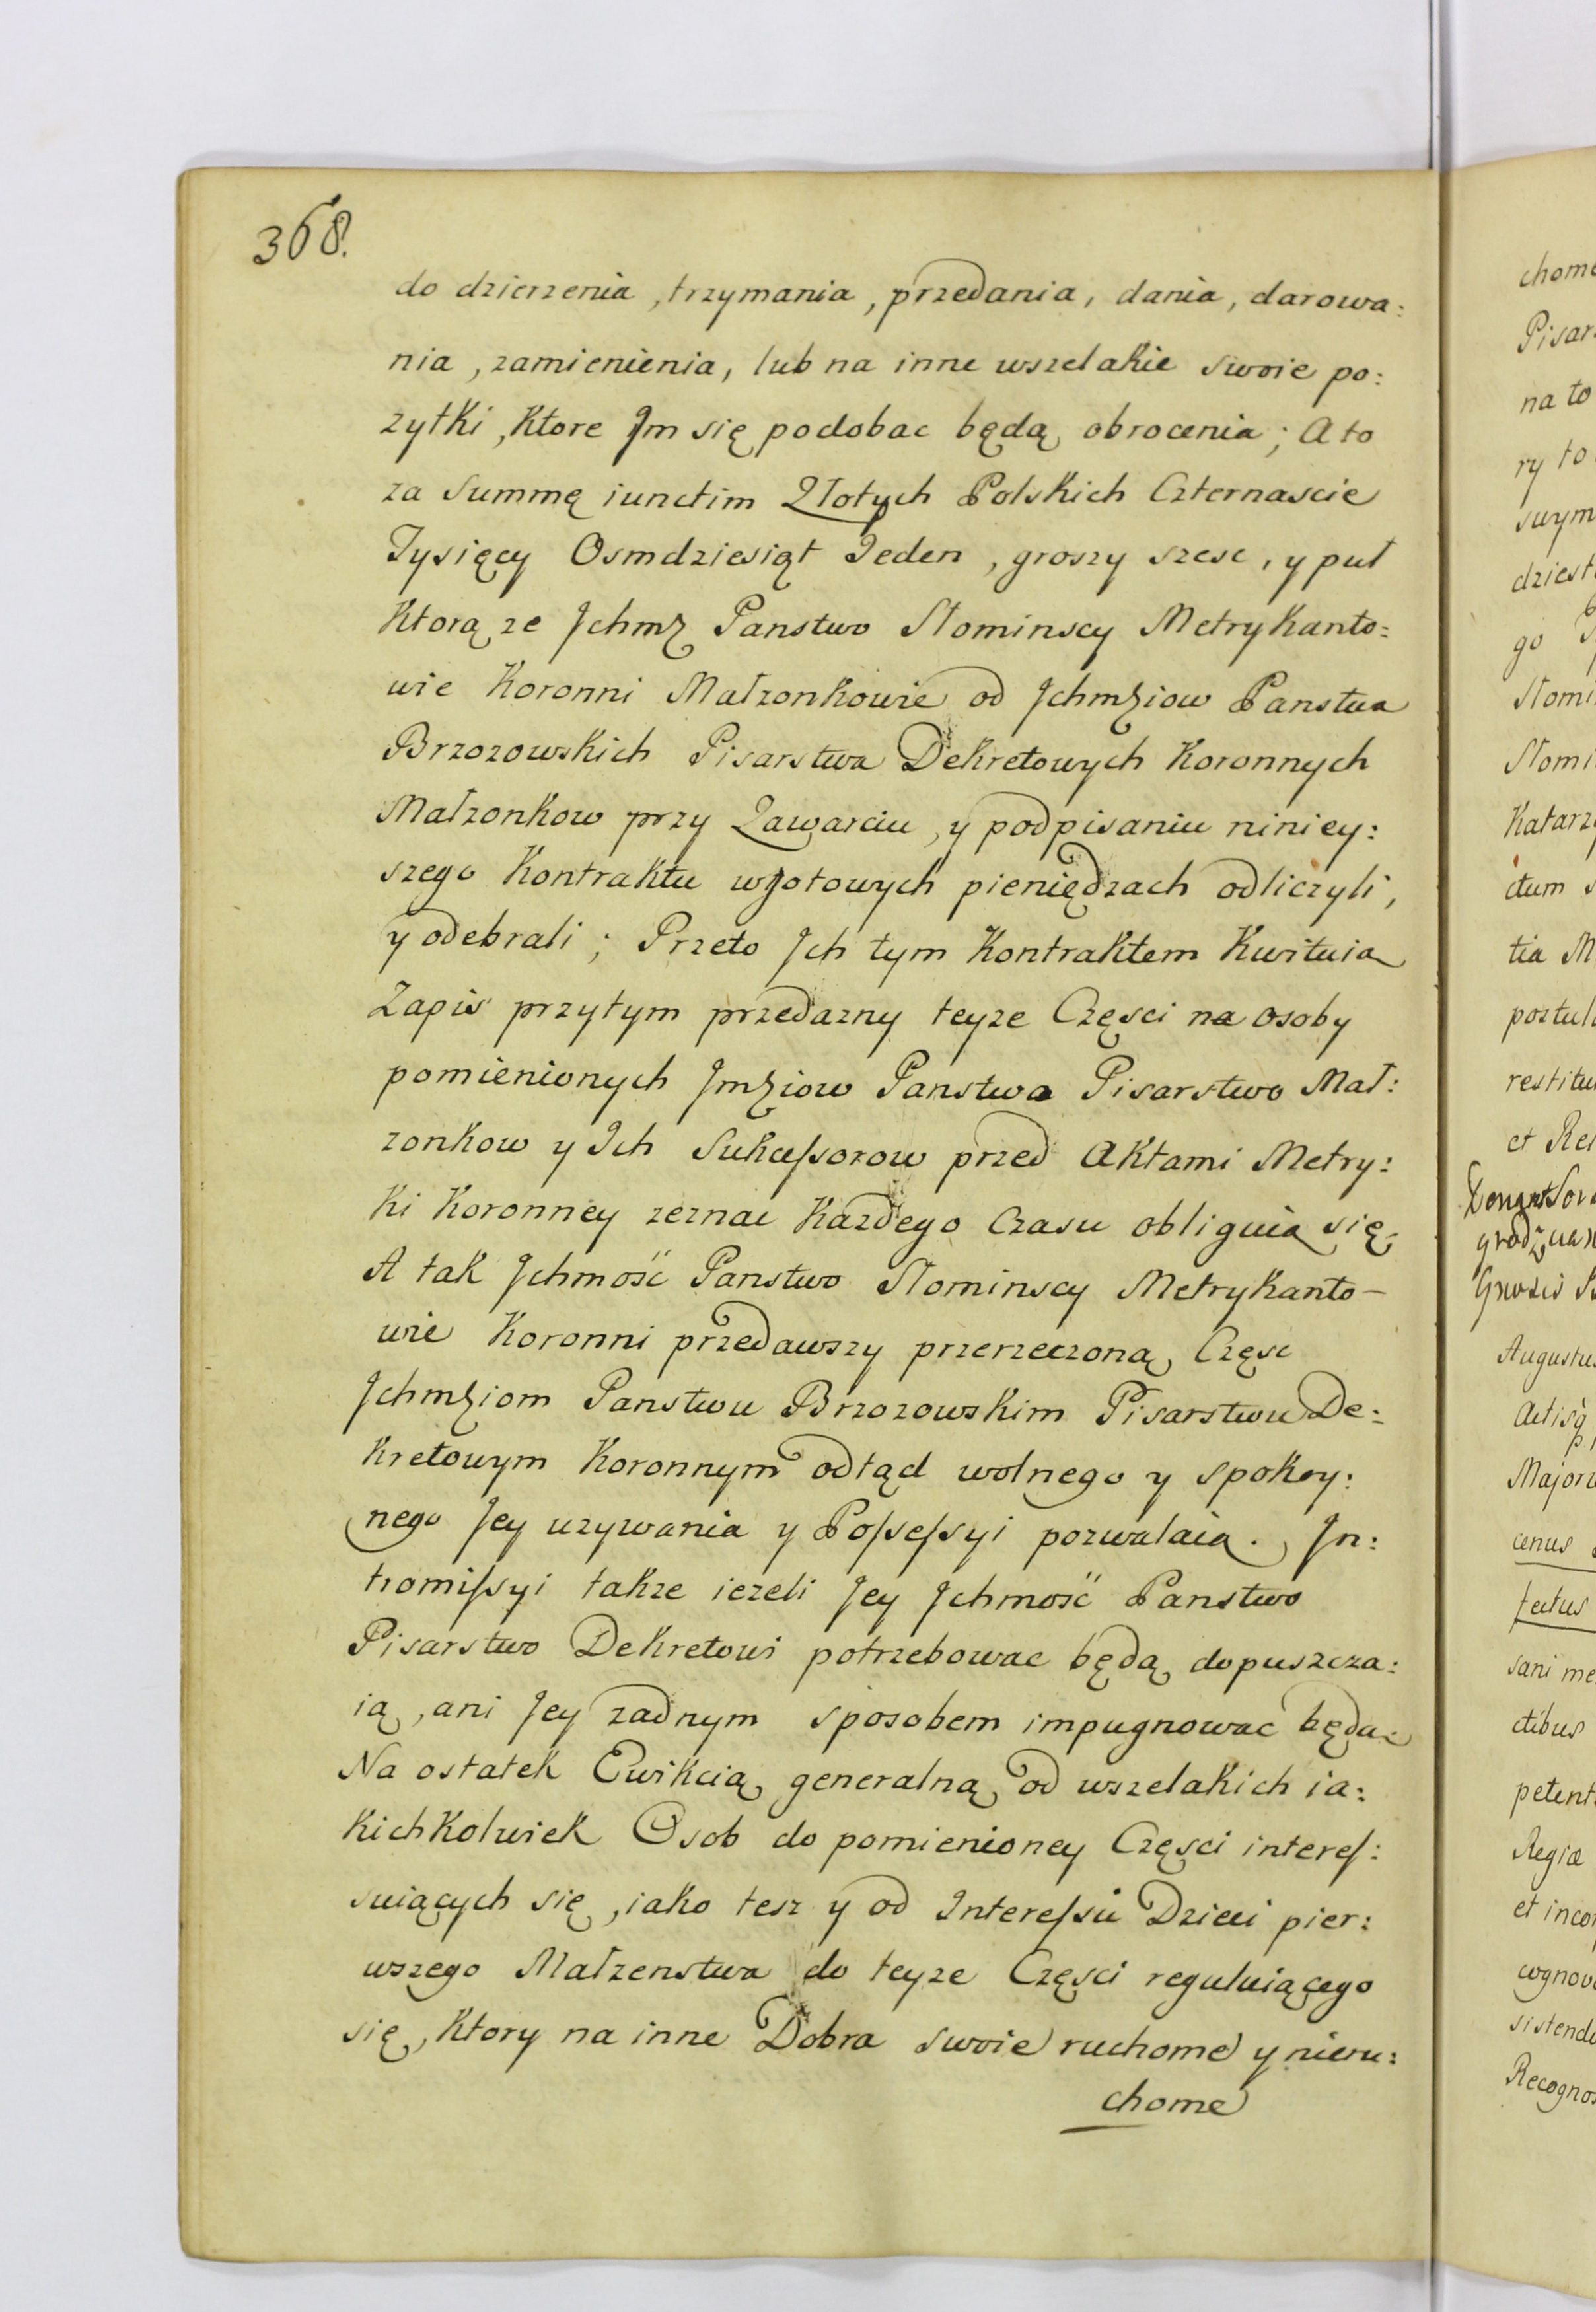 368.
do dzierzenia, trzymania, przedania, dania, darowa:
nia, zamienienia, lub na inne wszelakie swoie po:
zytki, Ktore Jm się podobac będą obrocenia; A to
za Summę iunctim Złotych Polskich Czternascie
Tysięcy Osmdziesiąt Jeden, groszy szesc, y puł
Ktorą ze Jchmz Panstwo Słominscy Metrykanto:
wie Koronni Małzonkowie od Jchmziow Panstwa
Brzozowskich Pisarstwa Dekretowych Koronnych
Małzonkow przy Zawarciu, y podpisaniu niniey:
szego Kontraktu w gotowych pieniędzach odliczyli,
y odebrali; Przeto Jch tym Kontraktem Kwituią
Zapis przytym przedazny teyze Częsci na osoby
pomienionych Jmziow Panstwa Pisarstwo Mał:
zonkow y Jch Sukcessorow przed Aktami Metry:
Ki Koronney zeznac Kazdego Czasu obliguią się
A tak Jchmość Panstwo Słominscy Metrykanto-
wie Koronni przedawszy przerzeczoną Częsc
Jchmziom Panstwu Brzozowskim Pisarstwu De:
Kretowym Koronnym odtąd wolnego y spokoy:
nego Jey uzywania y Possessyi pozwalaią. Jn:
tromissyi takze iezeli Jey Jchmość Panstwo
Pisarstwo Dekretowi potrzebowac będą dopuszcza:
ią, ani Jey zadnym sposobem impugnowac będą
Na ostatek Ewikcią generalną od wszelakich ia:
Kichkolwiek Osob do pomienioney Częsci interes:
suiących się, iako tesz y od Jnteressu Dzieci pier:
wszego Małzenstwa do teyze Częsci reguluiącego
się, Ktory na inne Dobra swoie ruchome y nieru:
chome
chom
Pisar
na to
ry to
swym
dziest
go
Słomi
Słomi
Katarz
ctum
tia M
postul
restitu
et Re
Augustu
Actisq
Major
cenus
fectus
sani me
ctibus
petent
Regiæ
et inco
cognov
sistend
Recogno